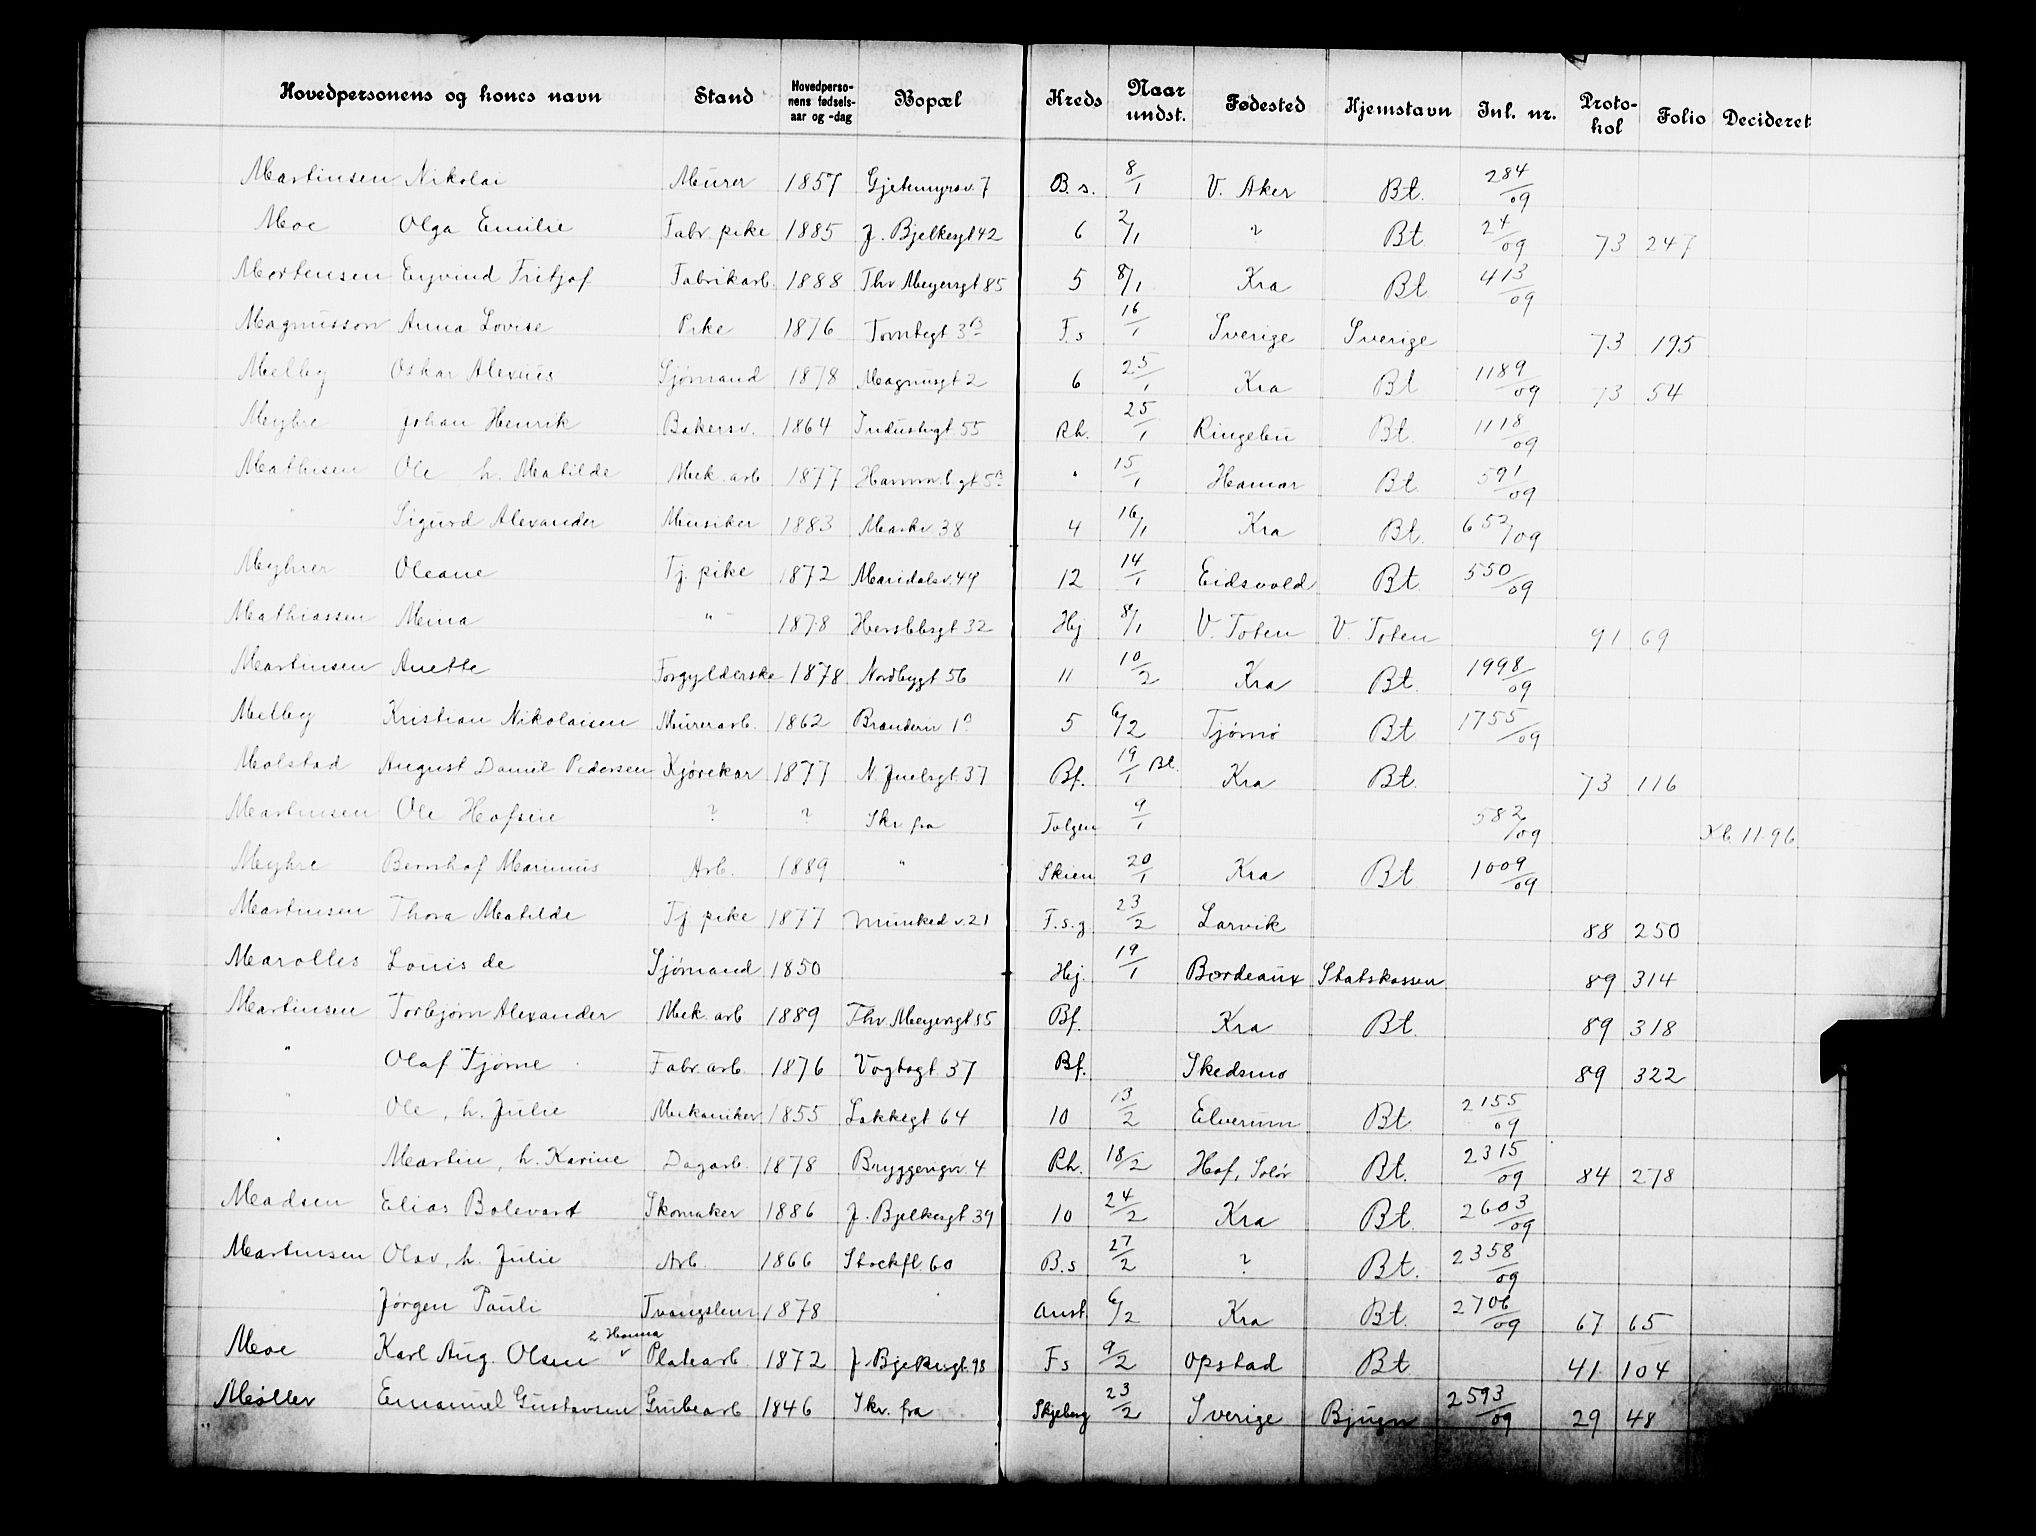 Hovedpersonens og kones navn Stand Hovedperso-nens fødsels-aar og -dag Bopæl Kreds Naar undst. Fødested Hjemstavn Inl. nr. Proto-kol Folio Decideret
Martinsen Nikolai Murer 1857 Gjetemyrsv. 7 B. s. 8/1 V. Aker Bt. 284/09
Moe Olga Emilie Fabr. pike 1885 J. Bjelkesgt 42 6 2/1 ? Bt 24/09 73 247
Mortensen Eyvind Fritjof Fabrikarb. 1888 Thv Meyersgt 85 5 8/1 Kra Bt 413/09
Magnusson Anna Lovise Pike 1876 Tomtegt 3B F.s 16/1 Sverige Sverige 73 195
Melby Oskar Alexius Sjømand 1878 Magnusgt 2 6 25/1 Kra Bt 1189/09 73 54
Myhre Johan Henrik Bakersv. 1864 Industrigt 55 Rh. 25/1 Ringebu Bt. 1118/09
Mathisen Ole h. Matilde Mek. arb 1877 Hamm.b.gt 5B " 15/1 Hamar Bt. 591/09
" Sigurd Alexander Musiker 1883 Markv 38 4 16/1 Kra Bt. 652/09
Myhrer Oleane Tj. pike 1872 Maridalsv. 49 12 14/1 Eidsvold Bt. 550/09
Mathiassen Mina " 1878 Herslebsgt 32 Hej 8/1 V. Toten V. Toten 91 69
Martinsen Anette Forgylderske 1878 Nordbygt 56 11 10/2 Kra Bt. 1998/09
Melby Kristian Nikolaisen Murerarb. 1862 5 6/2 Tjømø Bt 1755/09
Malstad August Daniel Pedersen Kjørekar 1877 N. Juelsgt. 37 Bf. 19/1 Bl. Kra Bt. 73 116
Martinsen Ole ? ? Skr fra Tolgen 9/1 582/09 11-96
Myhre Bernhof Marinius Arb. 1889 " Skien 20/1 Kra Bt 1009/09
Martinsen Thora Matilde Tj pike 1877 Munked v. 21 F. s. g. 23/2 Larvik 88 250
Marolles Louis de Sjømand 1850 Hej. 19/1 Bordeaux Statskassen 89 314
Martinsen Torbjørn Alexander Mek. arb 1889 Thv Meyersgt 55 Bf. Kra Bt. 89 318
" Olaf Tjørne Fabr. arb. 1876 Vogtsgt 37 Bf. Skedsmo 89 322
" Ole, h. Julie Mekaniker 1855 Lakkegt 64 10 13/2 Elverum Bt. 2155/09
" Martin, h. Karine Dagarb. 1878 Bryggerigv. 4 Rh. 18/2 Hof, Solør Bt. 2315/09 84 278
Madsen Elias Bolevard Skomaker 1886 J. Bjelkesgt 39 10 24/2 Kra Bt 2603/09
Martinsen Olav, h. Julie Arb. 1866 Stockfl. 60 B. s 27/2 ? Bt. 2358/09
Jørgen Pauli Tvangslem 1878 Anst. 6/2 Kra Bt 2706/09 67 65
Moe Karl Aug. Olsen h. Hanna Platearb. 1872 J. Bjelkesgt. 98 Fs 9/2 Opstad Bt 41 104
Møller Emanuel Gustavsen Grubearb 1846 Skr. fra Skjeberg 23/2 Sverige Bjugn 2593/09 29 48